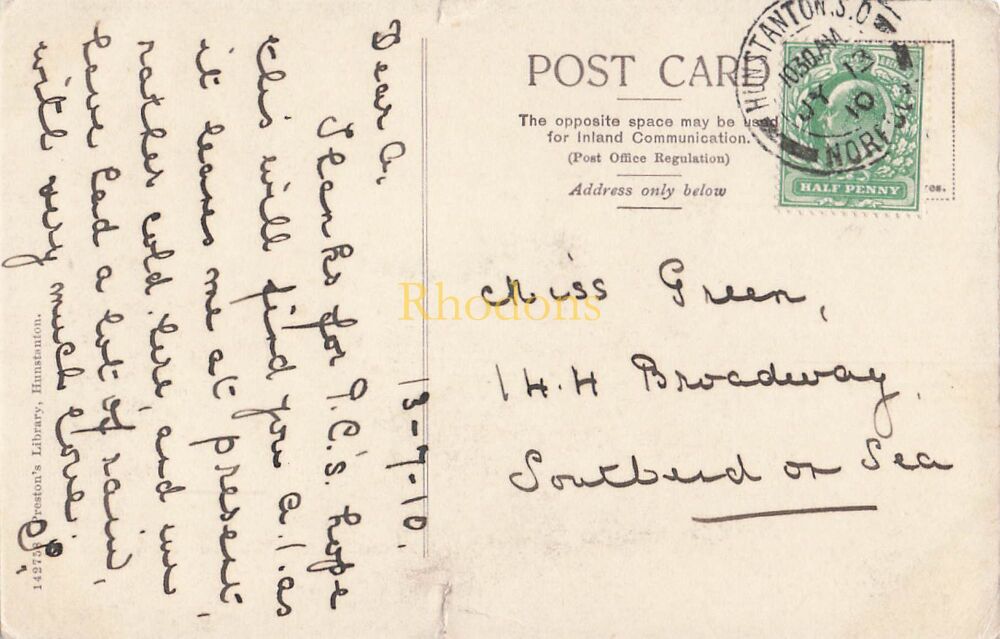 13-7-10.
Dear A.
Thanks for P.C's. hope
this will find you a.1. as
it leaves me at present,
rather cold here, and we
have had a lot of rain,
with very much love.
142758 Preston's Library, Hunstanton.
POST CARD
The opposite space may be used
for Inland Communication.
(Post Office Regulation)
Address only below
HUNSTANTON.S.O
10.30AM
JY 13
10
NORFOLK
HALF PENNY
Miss Green,
144 Broadway.
Southend on Sea
Rhodons